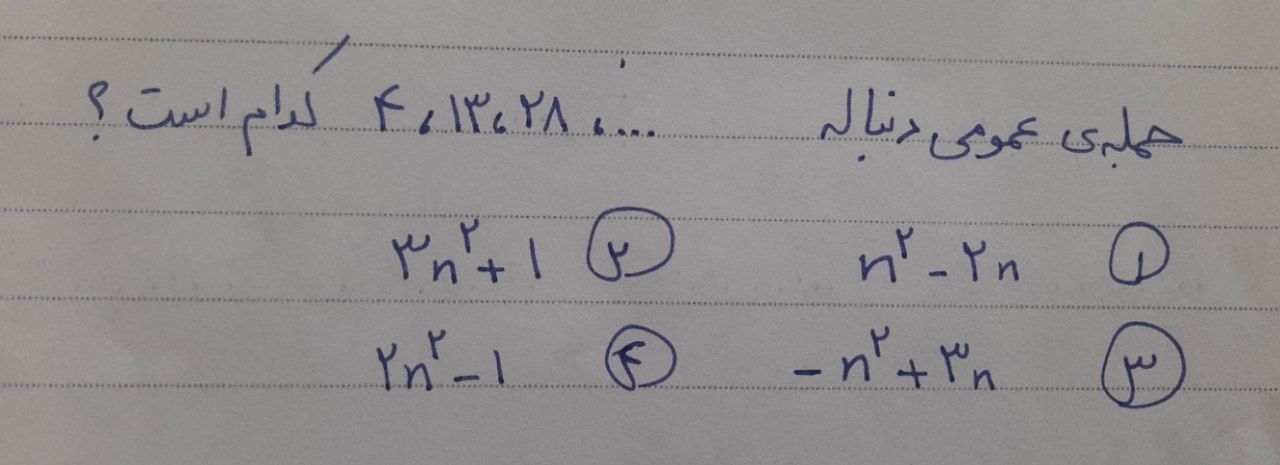 جمله‌ی عمومی دنباله ... ،۴،۱۳،۲۸ کدام است؟
① n² - ۲n ② ۳n² + ۱
③ -n² + ۳n ④ ۲n² - ۱